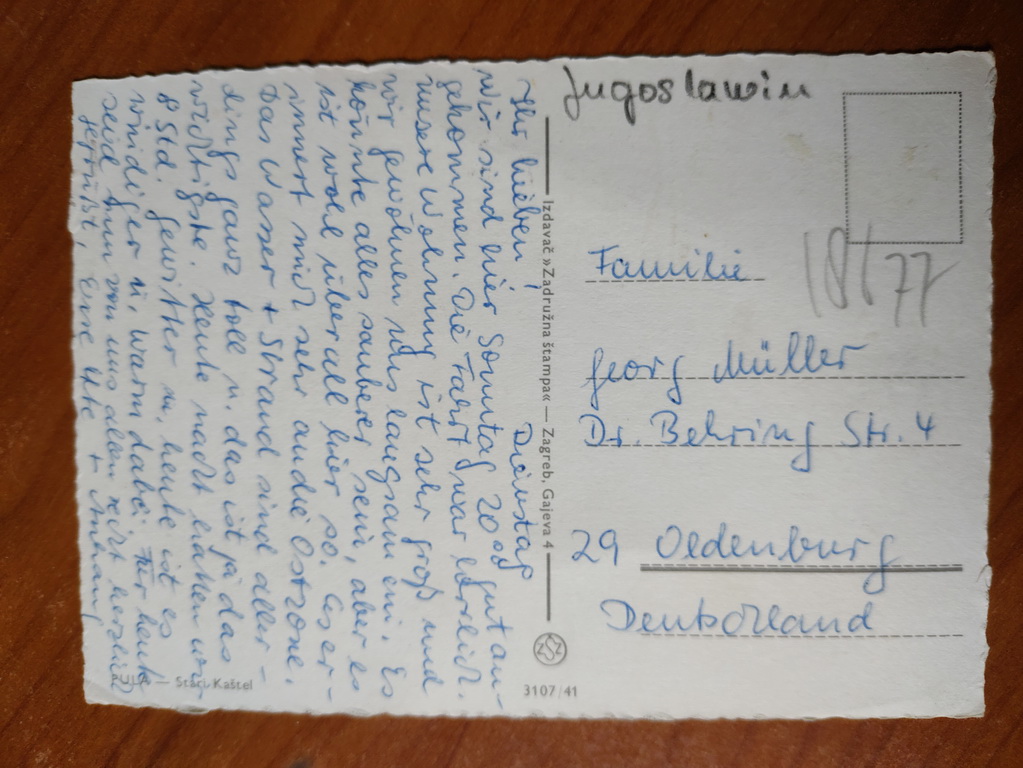 Dienstag
Ihr Lieben,
wir sind hier Sonntag 20 00 gut an-
gekommen. Die Fahrt war ehrlich.
unsere Wohnung ist sehr groß und
wir gewöhnen uns langsam ein. Es
könnte alles sauberer sein, aber es
ist wohl überall hier so. Es er-
innert mich sehr an die Ostzone.
Das Wasser + Strand sind aller-
dings ganz toll u. das ist ja das
wichtigste. Heute nacht hatten wir
8 Std. Gewitter u. heute ist es
windiger u. warm dabei. Für heute
seid nun von uns allen recht herzlich
gegrüßt, Eure Ute + Anhang
PULA — Stari Kaštel
Izdavač »Zadružna štampa« — Zagreb, Gajeva 4
ZSZ
3107/41
Jugoslawien
Familie
Georg Müller
Dr. Behring Str. 4
29 Oldenburg
Deutschland